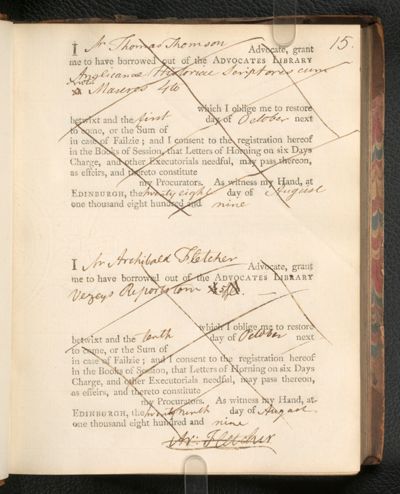 15.
I Mr Thomas Thomson Advocate, grant
me to have borrowed out of the ADVOCATES LIBRARY
Anglicanae Historiae Scriptores cum
notis Maseres 4to
which I oblige me to restore
betwixt and the first day of October next
to come, or the Sum of
in case of Failzie; and I consent to the registration hereof
in the Books of Session, that Letters of Horning on six Days
Charge, and other Executorials needful, may pass thereon,
as effeirs, and thereto constitute
my Procurators. As witness my Hand, at
EDINBURGH, the twenty eight day of August
one thousand eight hundred and nine
I Mr Archibald Fletcher Advocate, grant
me to have borrowed out of the ADVOCATES LIBRARY
Vezeys Reports tom
which I oblige me to restore
betwixt and the tenth day of October next
to come, or the Sum of
in case of Failzie; and I consent to the registration hereof
in the Books of Session, that Letters of Horning on six Days
Charge, and other Executorials needful, may pass thereon,
as effeirs, and thereto constitute
my Procurators. As witness my Hand, at
EDINBURGH, the twenty ninth day of August
one thousand eight hundred and nine
Ar. Fletcher